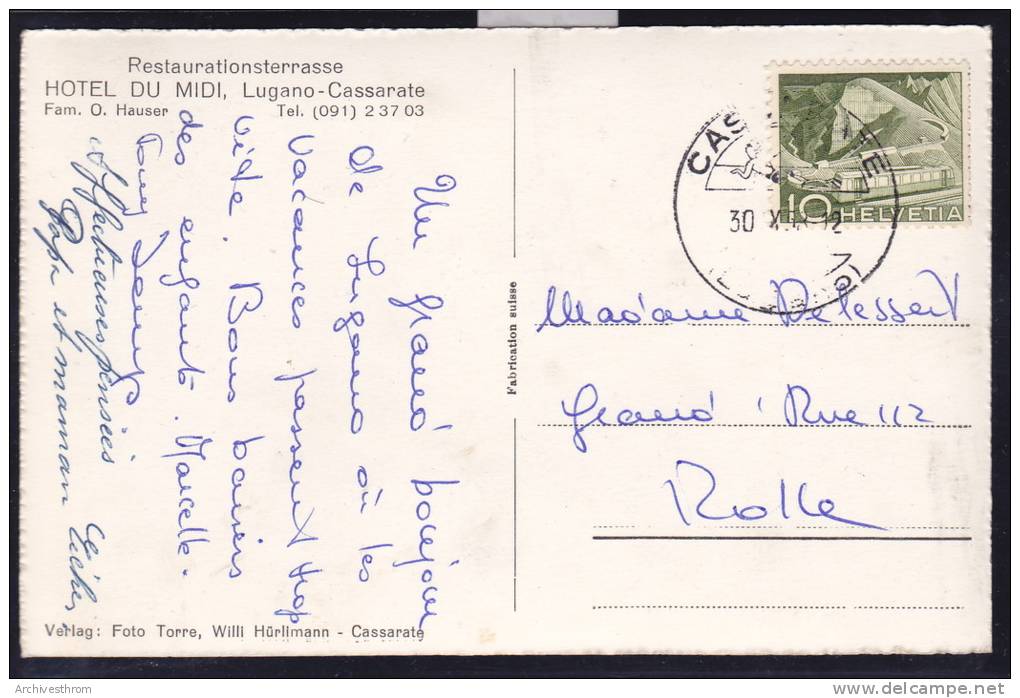 Restaurationsterrasse
HOTEL DU MIDI, Lugano-Cassarate
Fam. O. Hauser Tel. (091) 2 37 03
Un grand bonjour
de Lugano où les
vacances passent trop
vite. Bons baisers
des enfants. Marcelle.
affectueuses pensées
Papa et maman
Fabrication suisse
10 HELVETIA
30 X
Madame Delessert
Grand'Rue 112
Rolle
Verlag: Foto Torre, Willi Hürlimann - Cassarate
Archivesthrom
delcampe.net